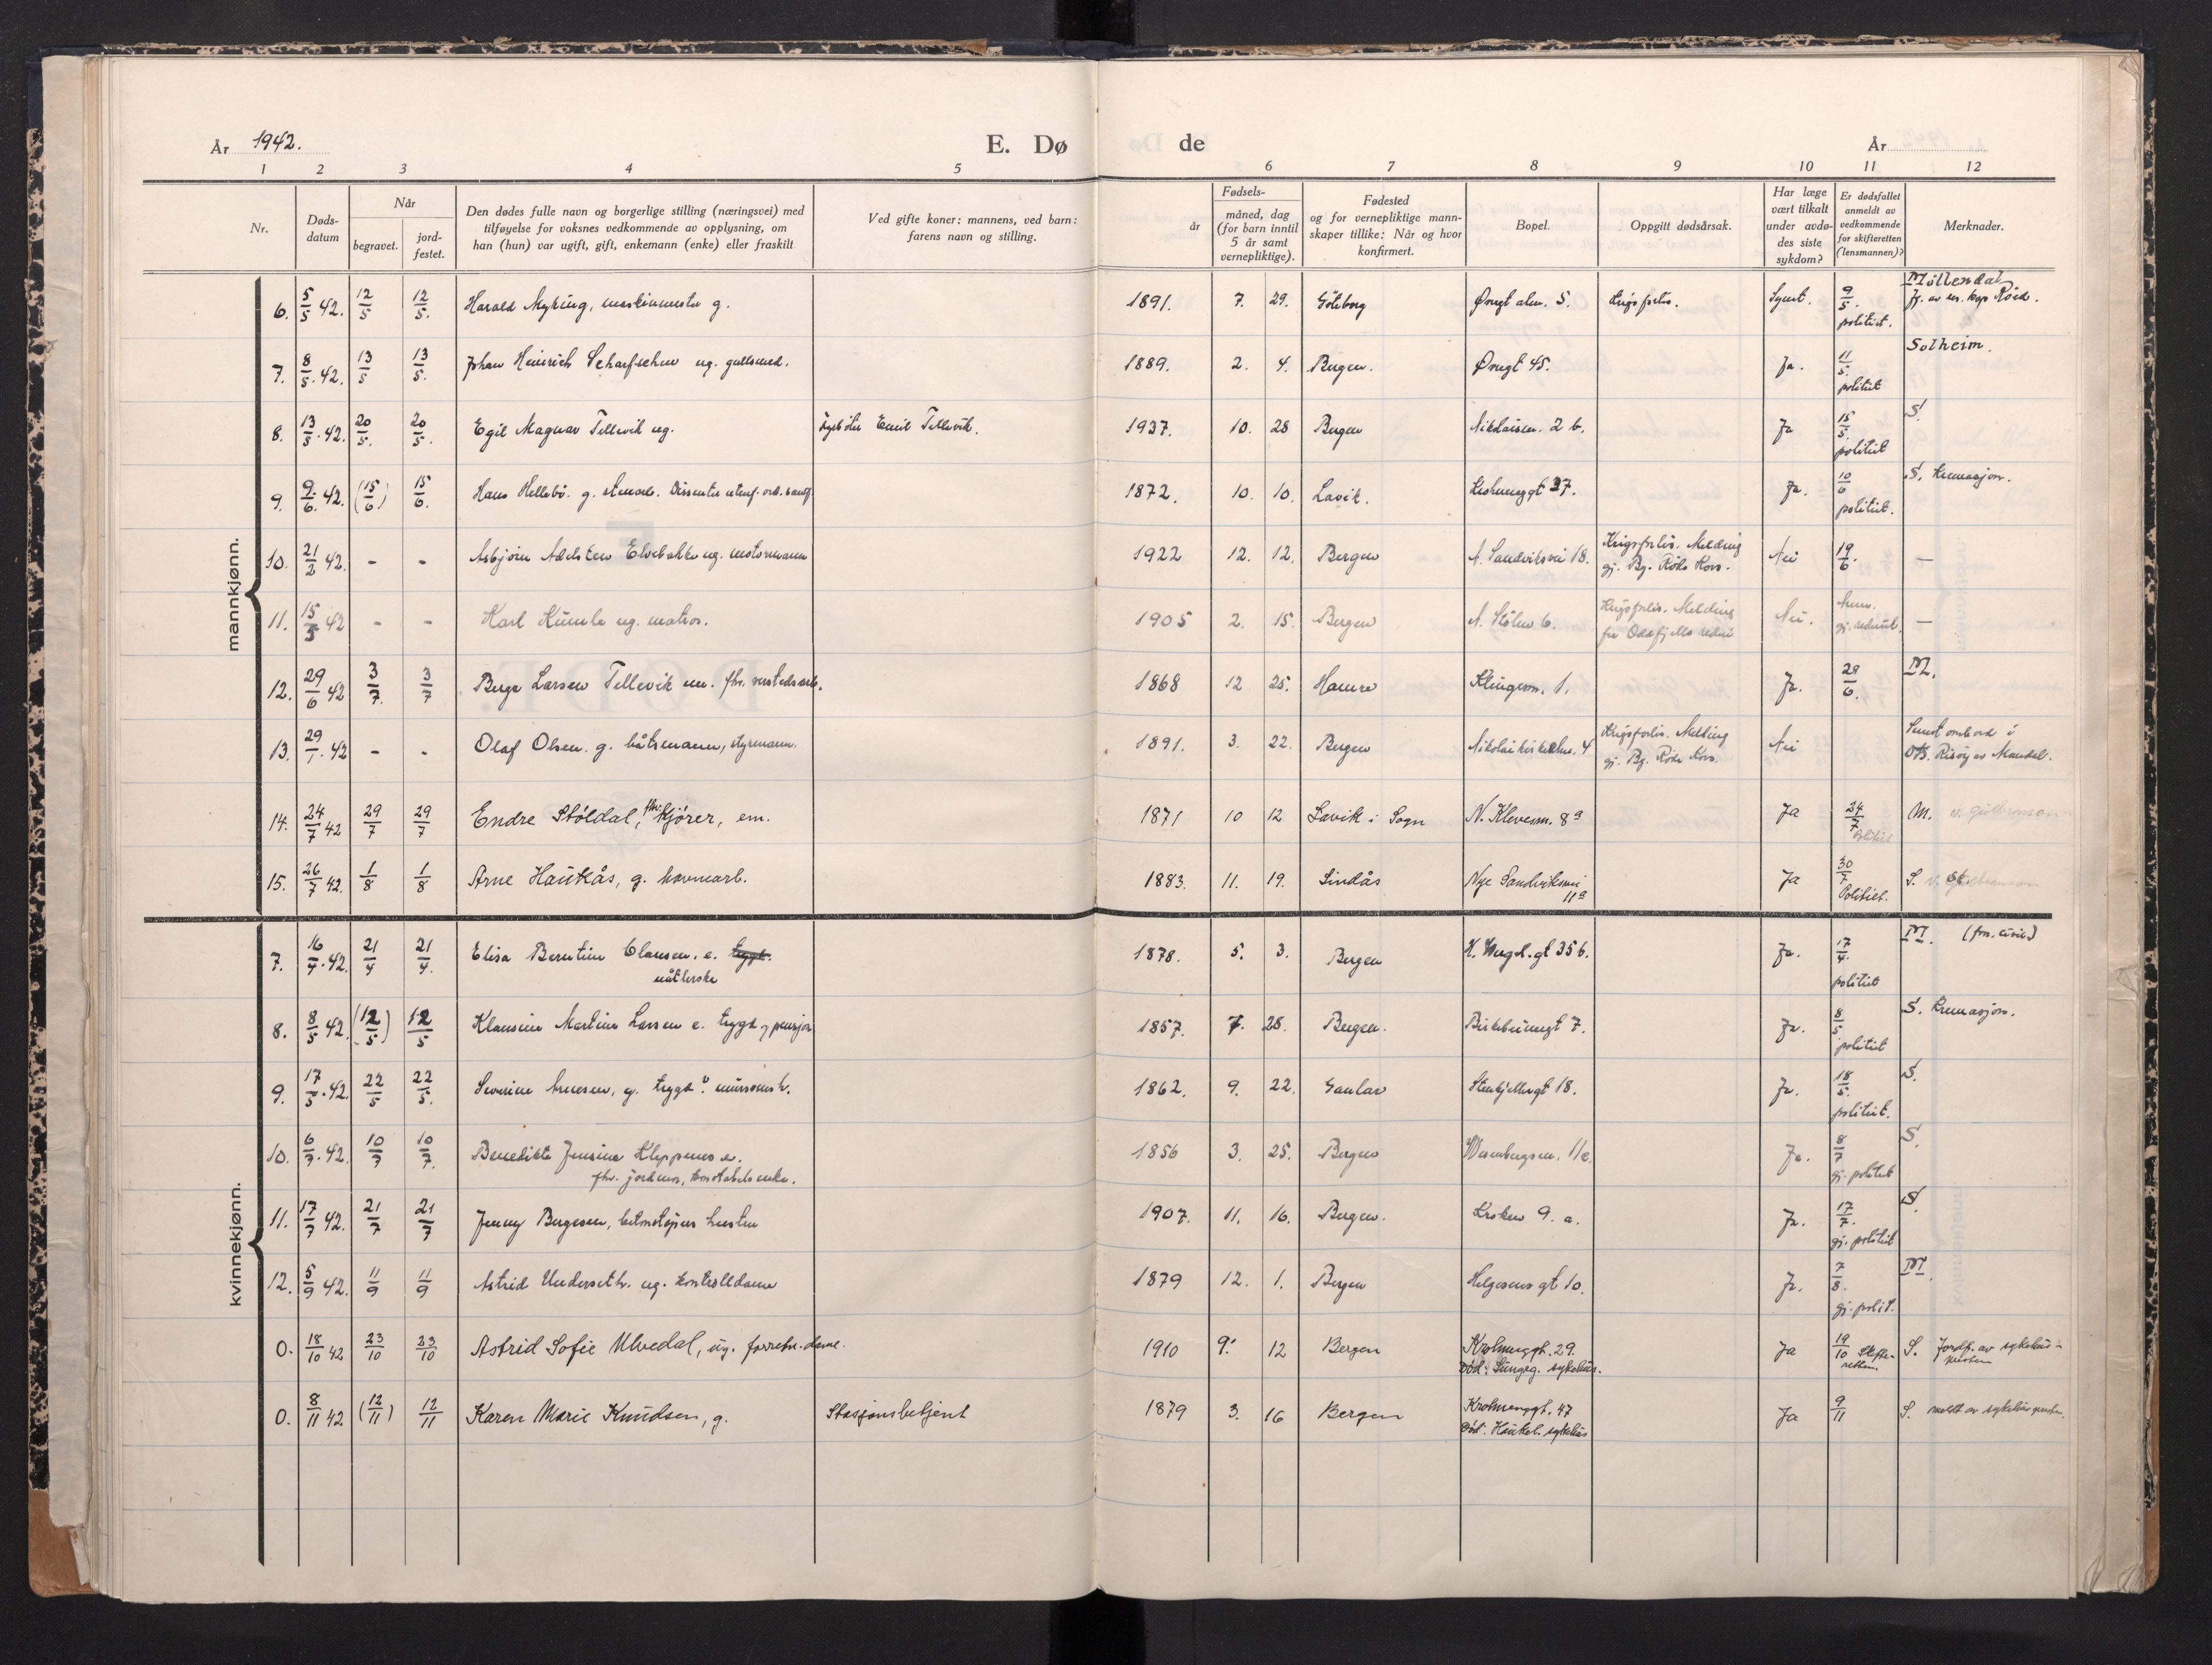 År 1942.
E. Dø de
År
1 2 3 4 5 6 7 8 9 10 11 12
Nr.
Døds-
datum
Når
begravet.
jord-
festet.
Den dødes fulle navn og borgerlige stilling (næringsvei) med
tilføyelse for voksnes vedkommende av opplysning, om
han (hun) var ugift, gift, enkemann (enke) eller fraskilt
Ved gifte koner: mannens, ved barn:
farens navn og stilling.
Fødsels-
år
måned, dag
(for barn inntil
5 år samt
vernepliktige).
Fødested
og for vernepliktige mann-
skaper tillike: Når og hvor
konfirmert.
Bopel.
Oppgitt dødsårsak.
Har læge
vært tilkalt
under avdø-
des siste
sykdom?
Er dødsfallet
anmeldt av
vedkommende
for skifteretten
(lensmannen)?
Merknader.
mannkjønn.
Møllendal
6. 5/5 42. 12/5 12/5. Harald Myking, maskinmester g. 1891. 7. 29. Göteborg Øvregt alm. 5. Krigsforlis. Synet. 9/5. politiet. Jf. av res. kap Röed.
Solheim.
7. 8/5. 42. 13/5 13/5. Johan Heinrich ug. gullsmed. 1889. 2. 4. Bergen. Øvregt 45. Ja. 11/5. politiet
8. 13/5. 42. 20/5. 20/5. Egil Magnar Tellevik ug. Emil Tellevik. 1937. 10. 28 Bergen Nikolaism. 2 b. Ja 15/5. politiet S.
9. 9/6. 42. (15/6) 15/6. Hans Hellebö. g. Dissenter utenf. ord. samf. 1872. 10. 10. Lavik. 37. Ja. 10/6 politiet. S. Kremasjon.
10. 21/2 42. - - Asbjörn Adelsten Elvebakke ug. motormann 1922 12. 12. Bergen N. Sandviksvei 18. Krigsforlis. Melding
gj. Bg. Röde Kors. Nei 19/6. —
11. 15/3 42 - - Karl Kümle ug. matros. 1905 2. 15. Bergen N. Stölen 6. Krigsforlis. Melding
fra Oddfjells rederi Nei. —
12. 29/6 42 3/7. 3/7 Berge Larsen Tellevik em. fhv. verkstedsarb. 1868 12 25. Hamre Klingesm. 1. Ja. 29/6. M.
13. 29/1. 42 - - Olaf Olsen. g. båtsmann, styrmann. 1891. 3. 22. Bergen Nikolaikirkealm. 4 Krigsforlis. Melding
gj. Bg. Röde Kors. Nei ombord i
D/S. Risöy av Mandal.
14. 24/7 42 29/7 29/7 Endre Stöldal, fhv. kjörer, em. 1871 10 12 Lavik i Sogn N. Klevesm. 8a Ja 24/7 Politiet M.
15. 26/7 42. 1/8 1/8 Arne Haukås, g. havnearb. 1883. 11. 19. Lindås Nye Sandviksvei
11a Ja 30/7 Politiet. S.
kvinnekjønn.
7. 16/4. 42. 21/4 21/4. Elisa Berntine Clausen. e.
nåtlerske 1878. 5. 3. Bergen H. Wergel. gt 35 b. Ja. 17/4. politiet M. (frm. civil)
8. 8/5 42 (12/5) 12/5 Klausine Martine Larsen e. trygd, pensjon 1857. 7. 28. Bergen. Birkebeinergt 7. Ja. 8/5. politiet S. Kremasjon.
9. 17/5. 42. 22/5 22/5. Severine ug. trygd 1862. 9. 22. Gaular Stenkjellergt 18. Ja. 18/5. politiet. S.
10. 6/7. 42. 10/7 10/7. Benedikte Jensine Kleppenes e.
fhv. jordmor, konstabels enke. 1856 3. 25. Bergen Wesenbergsm. 11 c. Ja. 8/7 gj. politiet S.
11. 17/7 42. 21/7 21/7 Jenny Bergesen, betonstöpers hustru 1907. 11. 16. Bergen. Kroken 9. a. Ja. 17/7. gj. politiet S.
12. 5/9 42. 11/9 11/9 Astrid Underseth. ug. kontrolldame 1879 12. 1. Bergen Helgesens gt 10. Ja. 7/8. gj. polit. M.
0. 18/10 42 23/10 23/10 Astrid Sofie Ulvedal, ug. forretn.dame. 1910 9. 12 Bergen Krohnenggt. 29.
Död: Sungeg. sykehus. Ja 19/10 Skifte-
retten. S. Jordf. av sykehus-
presten
0. 8/11 42 (12/11) 12/11 Karen Marie Knudsen, g. Stasjonsbetjent 1879 3. 16 Bergen Krohnenggt. 47
Död: Haukel. sykehus Ja 9/11 S. meldt av sykehuspresten.